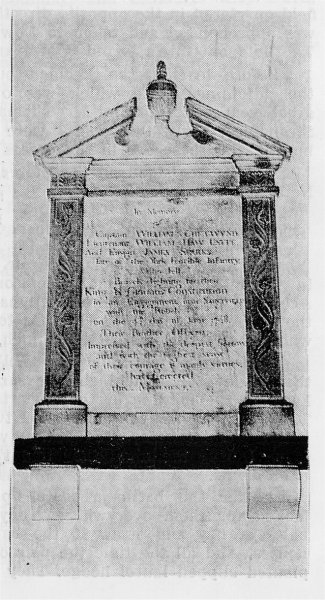 In Memory
of
Captain WILLIAM CHETWYND
Lieutenant WILLIAM HAW
And Ensign JAMES SPARKS
late of the York Fencible Infantry
Who fell
Bravely defending their
King & Glorious Constitution
in an Engagement near
with the Rebels
on the of June 1798.
Their Brother Officers
Impressed with the deepest Sorrow
and with the highest sense
of their courage & manly virtues,
Have Erected
this Monument.